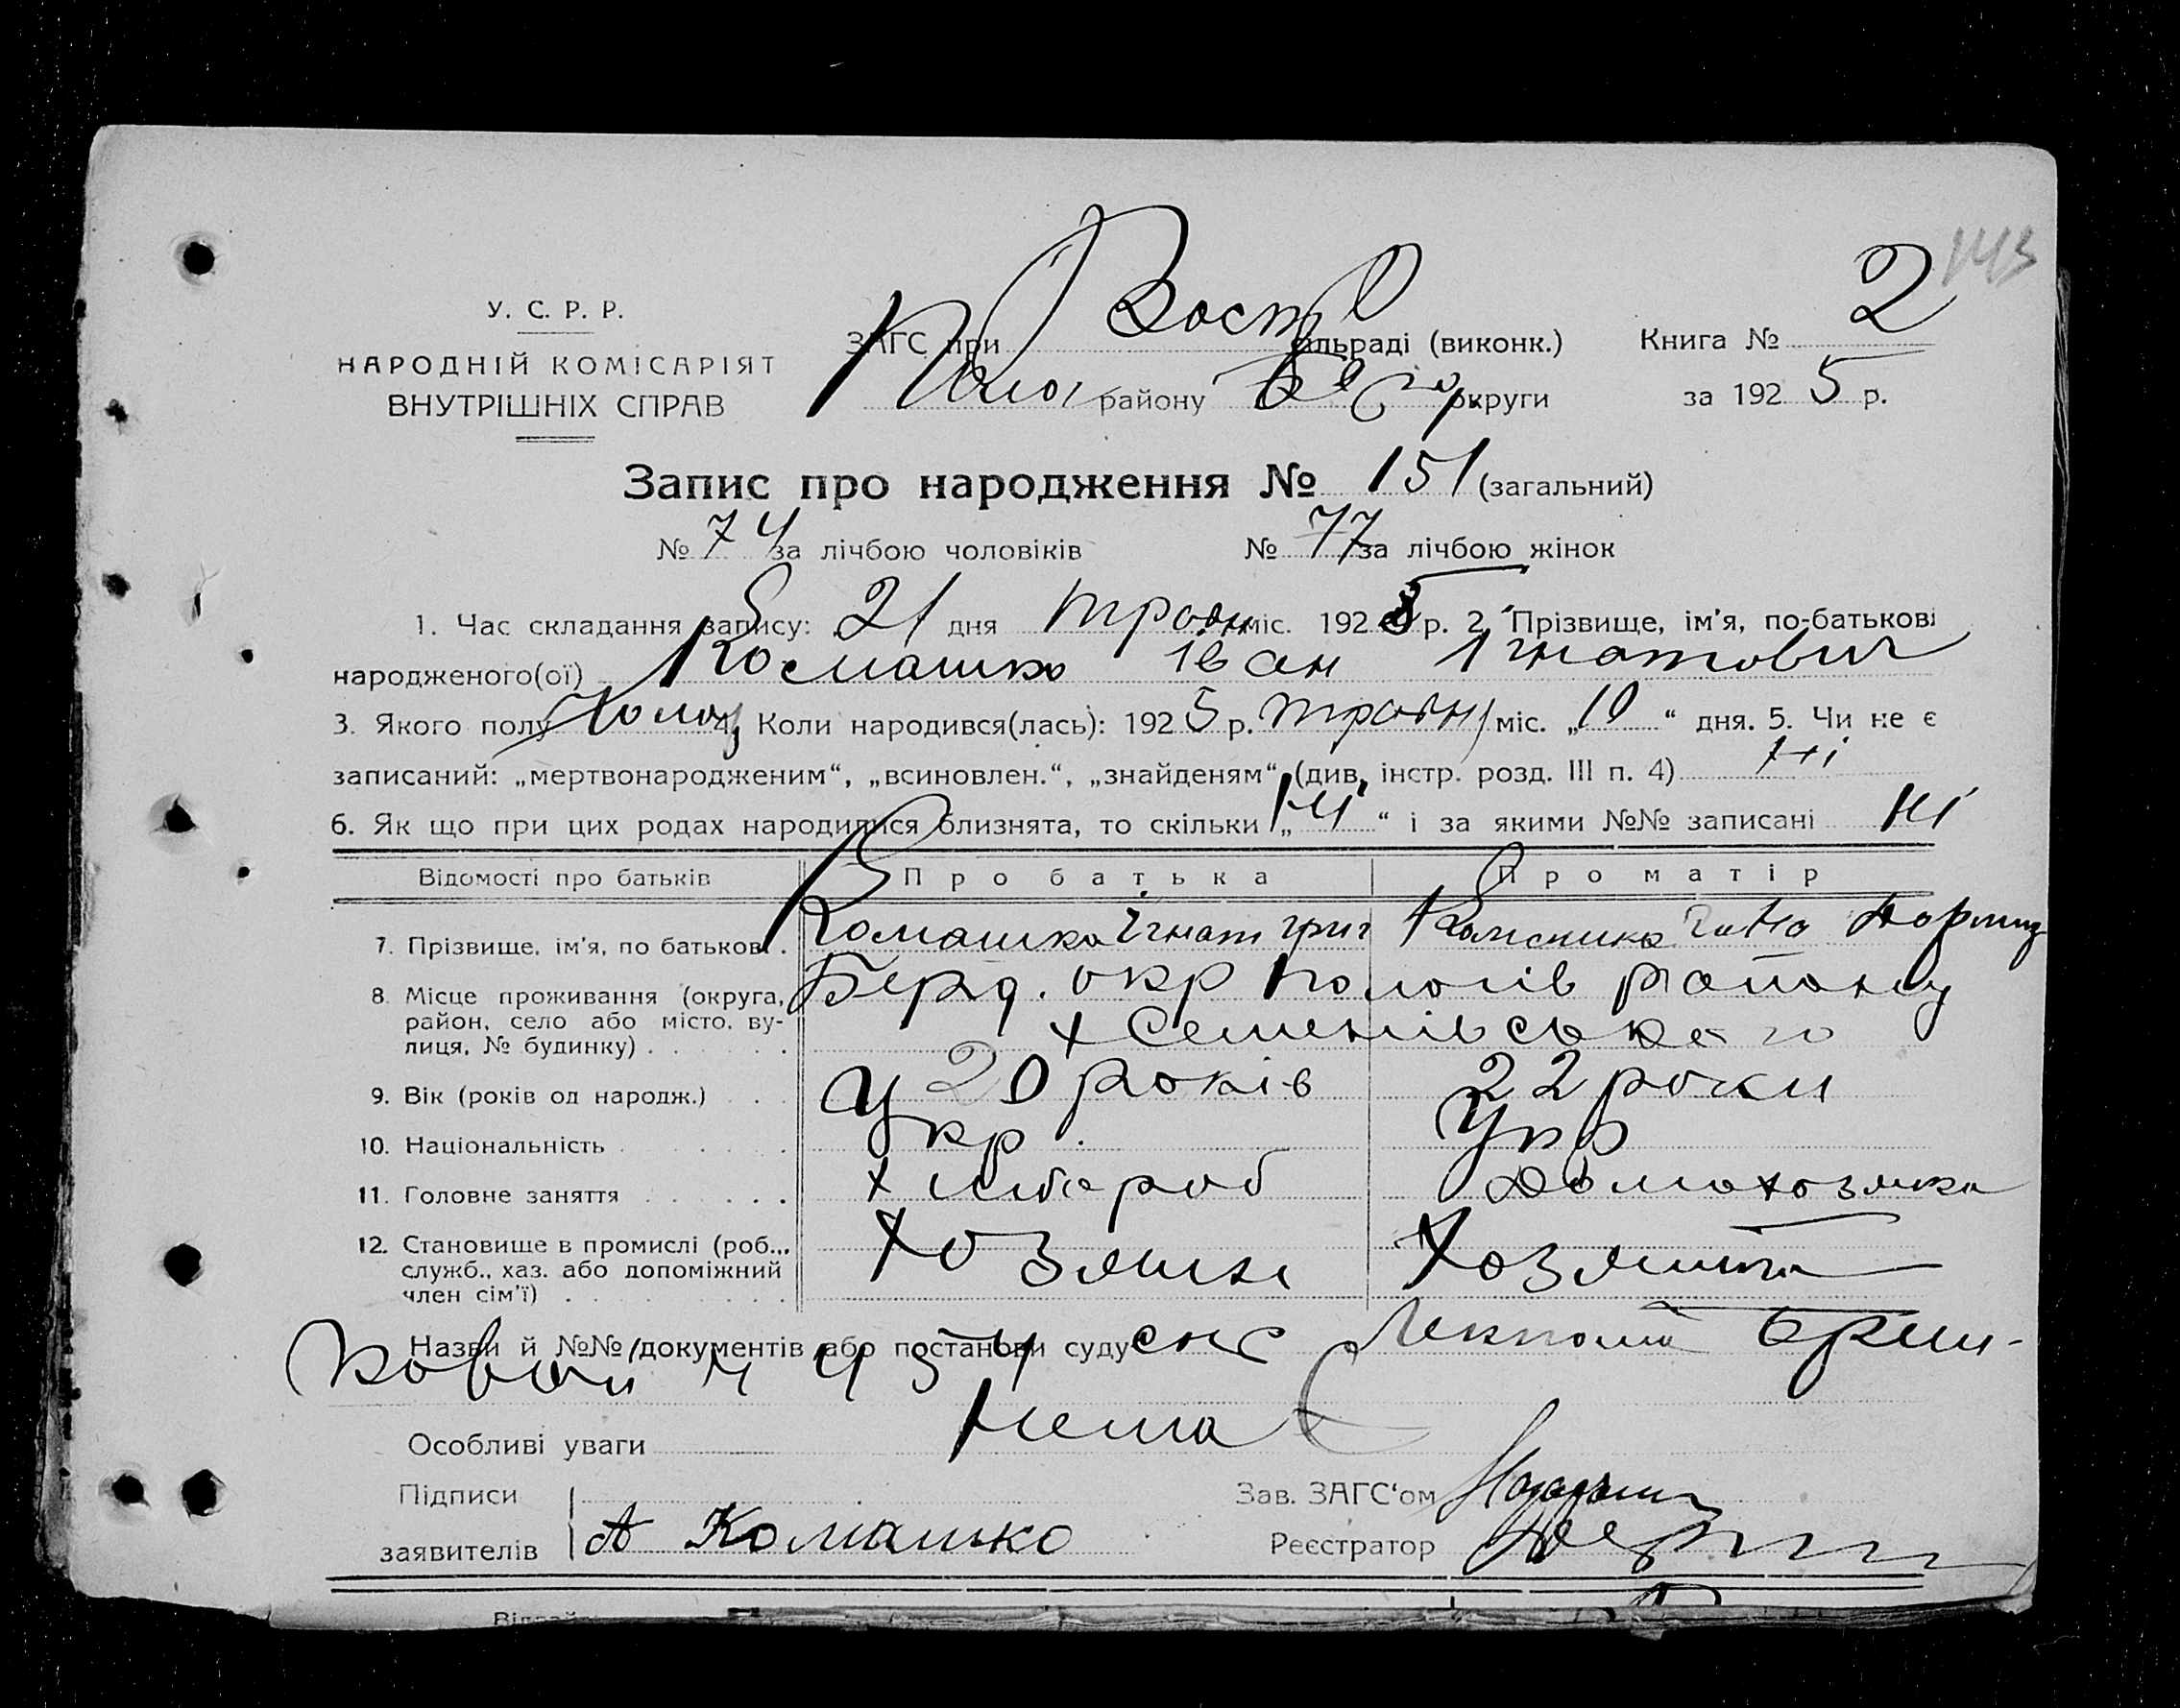 143
У. С. Р. Р.
НАРОДНІЙ КОМІСАРІЯТ
ВНУТРІШНІХ СПРАВ
ЗАГС при Вост сільраді (виконк.) Книга № 2
Полог району округи за 1925 р.
Запис про народження № 151 (загальний)
№ 74 за лічбою чоловіків № 77 за лічбою жінок
1. Час складання запису: 21 дня травн міс. 1925 р. 2. Прізвище, ім'я, по-батькові
народженого(ої) Комашко Іван Ігнатович
3. Якого полу Чолов 4. Коли народився(лась): 1925 р. травн міс. „10“ дня. 5. Чи не є
записаний: „мертвонародженим“, „всиновлен.“, „знайденям“ (див. інстр. розд. III п. 4) Ні
6. Як що при цих родах народилися близнята, то скільки „Ні“ і за якими №№ записані Ні
Відомості про батьків Про батька Про матір
7. Прізвище, ім'я, по батькові . Комашко Ігнат григ Комашко
8. Місце проживання (округа, Берд. окр Пологів району
район, село або місто, ву- х Семенівського
лиця, № будинку)
9. Вік (років од народж.) 20 років 22 роки
10. Національність Укр Укр
11. Головне заняття хлібороб домохозяйка
12. Становище в промислі (роб., Хозяин Хозяйка
служб., хаз. або допоміжний
член сім'ї)
Назви й №№ документів або постанови суду
Особливі уваги Нема
Підписи Зав. ЗАГС'ом
заявителів А Комашко Реєстратор